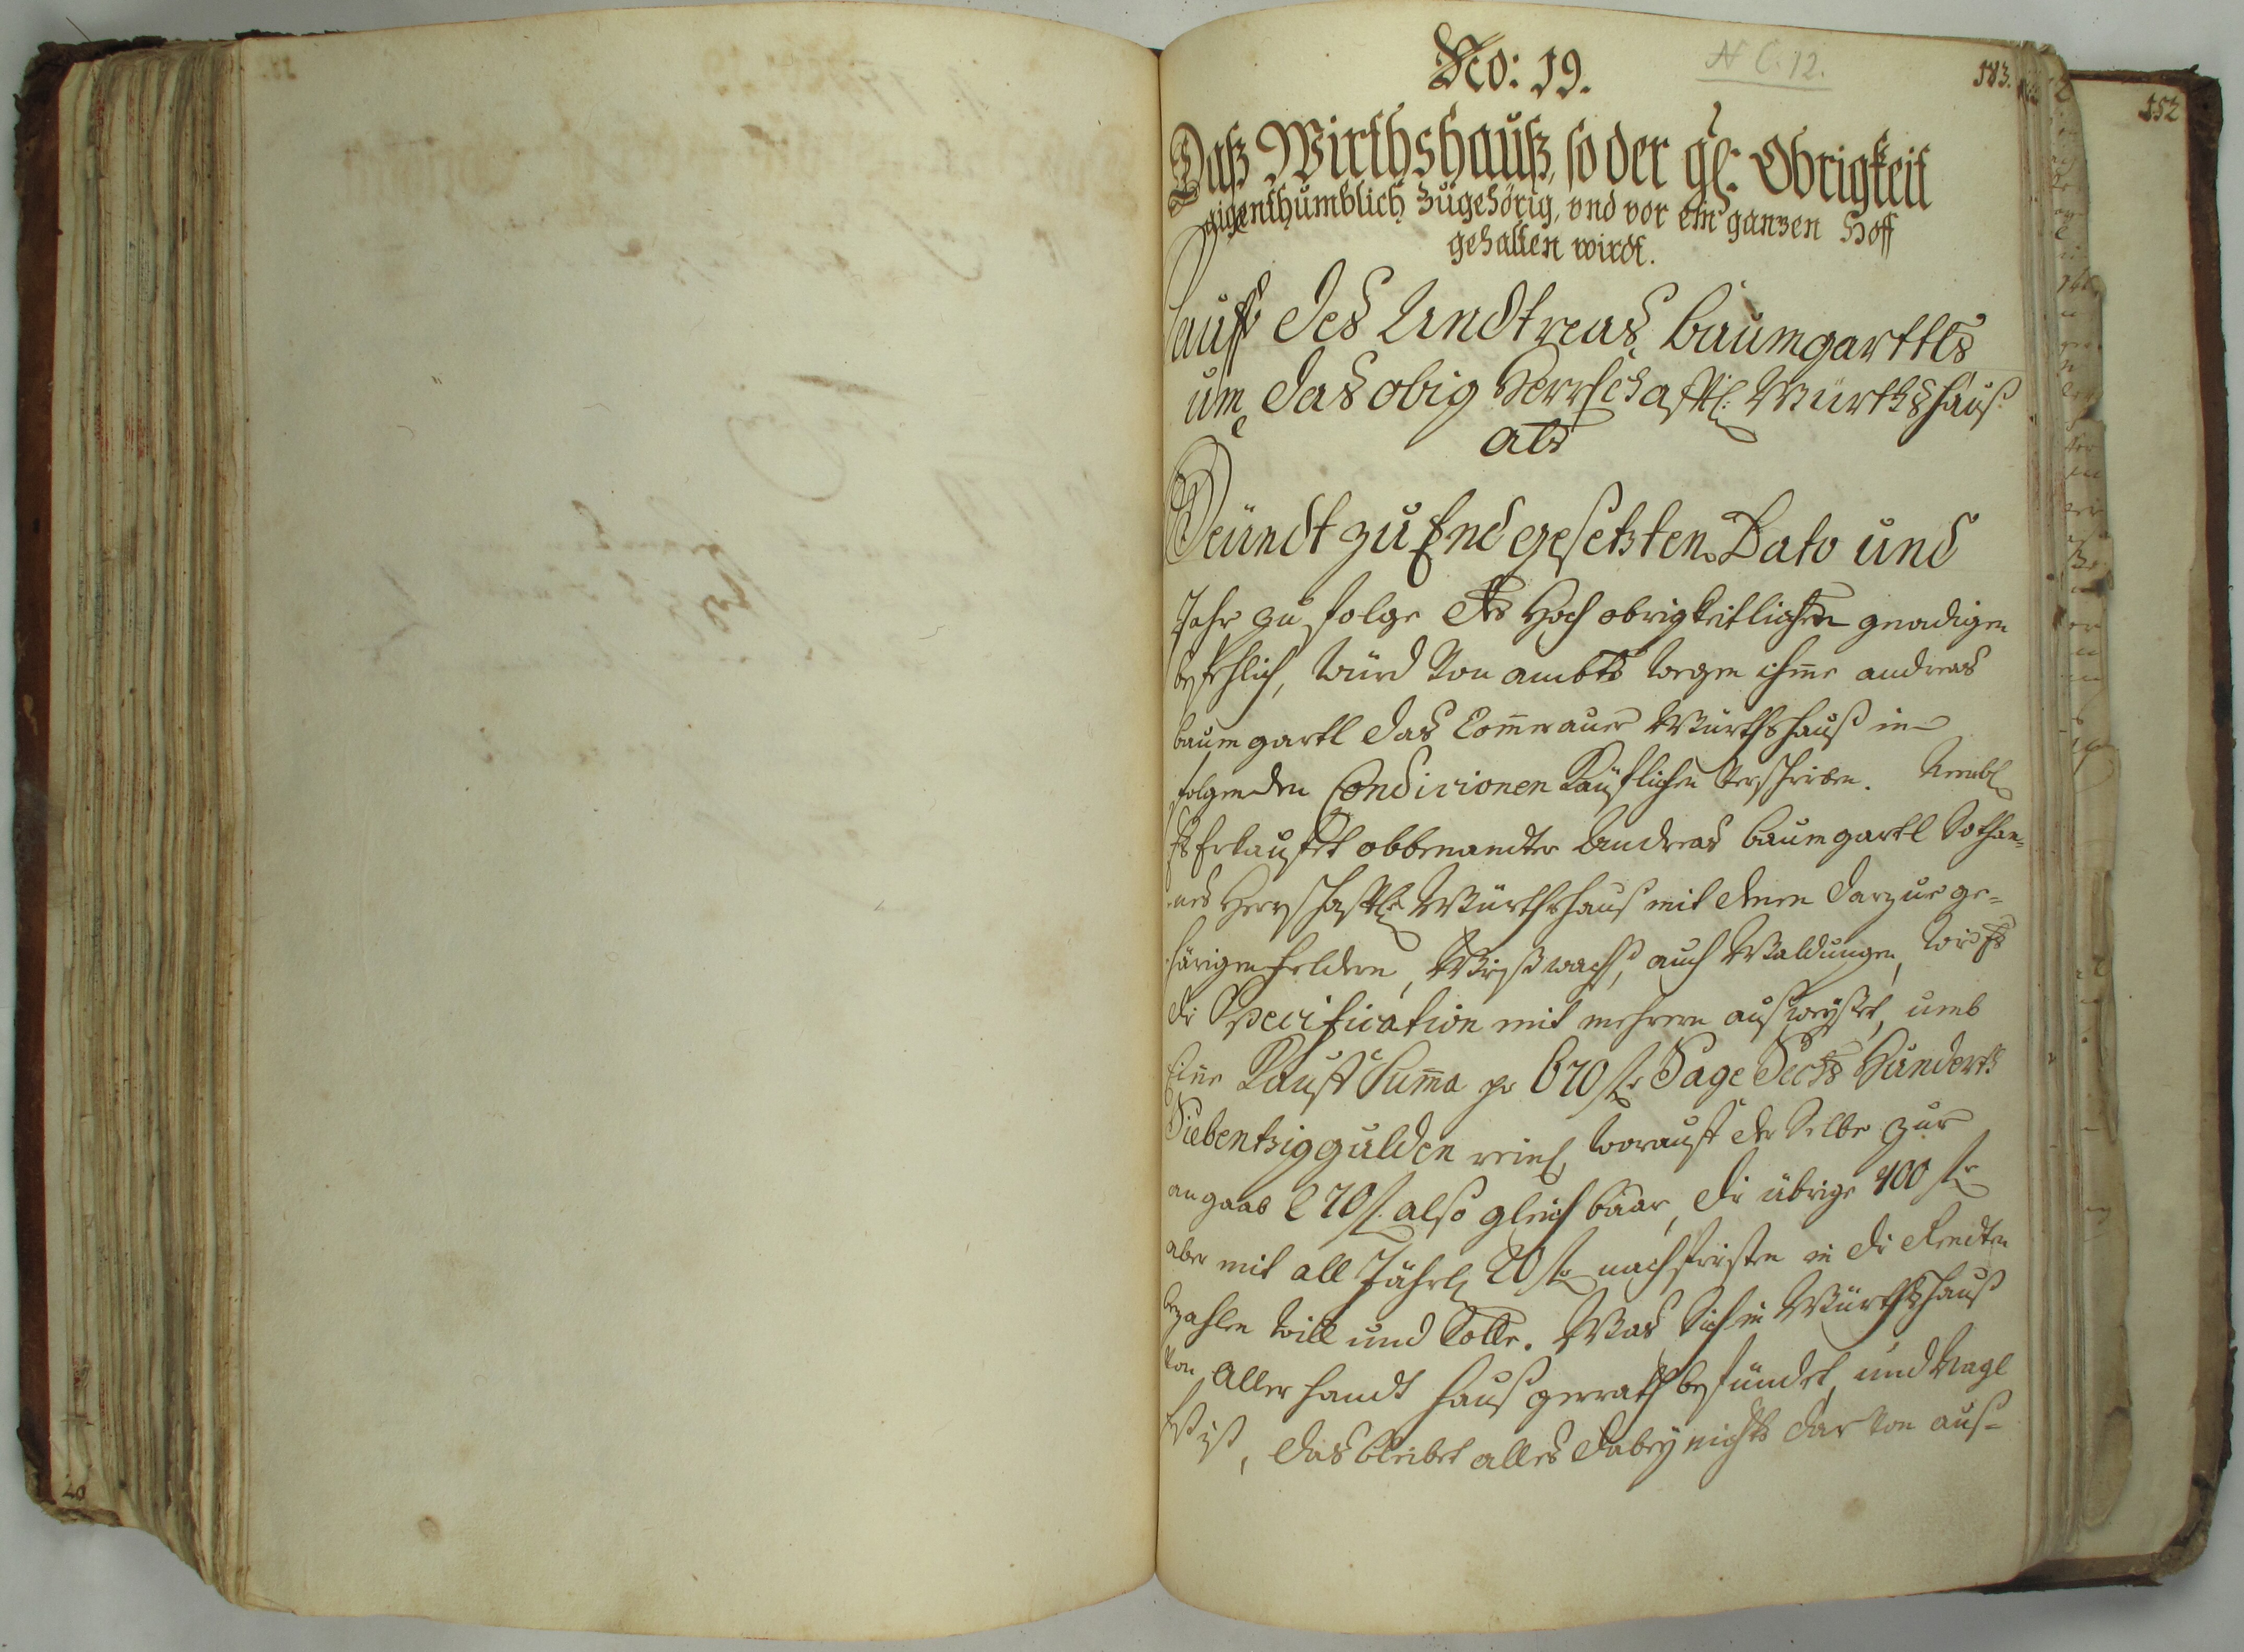 No: 19.
N C. 12.
183.
152
Daß Wirthshauß, so der gl: Obrigkeit
eigenthumblich zugehörig, und vor ein ganzen Hoff
gehalten wirdt.
Kauff des Andtreas Baumgarttls
um das obig Herrschafftl: Würthshauß
als
Heündt zu End gesetzten Dato und
Jahr zu folge des Hoch obrigkeitlichen gnadigen
befehlich, würd von ambts wegen ihme andreas
baumgartl das Commauer Würthshauß in
folgenden Condicionen Käuflichen verschriben. Nembl
Es Erkauffet obbenandter Andreas Baumgartl Sothan-
nes Herrschafftl: Würthshauß mit denen darzue ge-
hörigen feldern, Wießwachß, auch Waldungen, wie es
die Specification mit mehrern außweyset, umb
Eine Kauff Summa pr 670 f Sage Sechs Hunderth
Siebentzig gulden reinl, worauff der Selbe zur
angaab 270 f. also gleich baar, die übrige 400 f
aber mit all Jährl 20 f nachfristen in die Rendten
bezahlen will und Solle. Was Sich in Würthshauß
von aller handt haußgerath befündet, und Nagl
fest ist, das bleibet alles dabey nichts dar von auß-
20